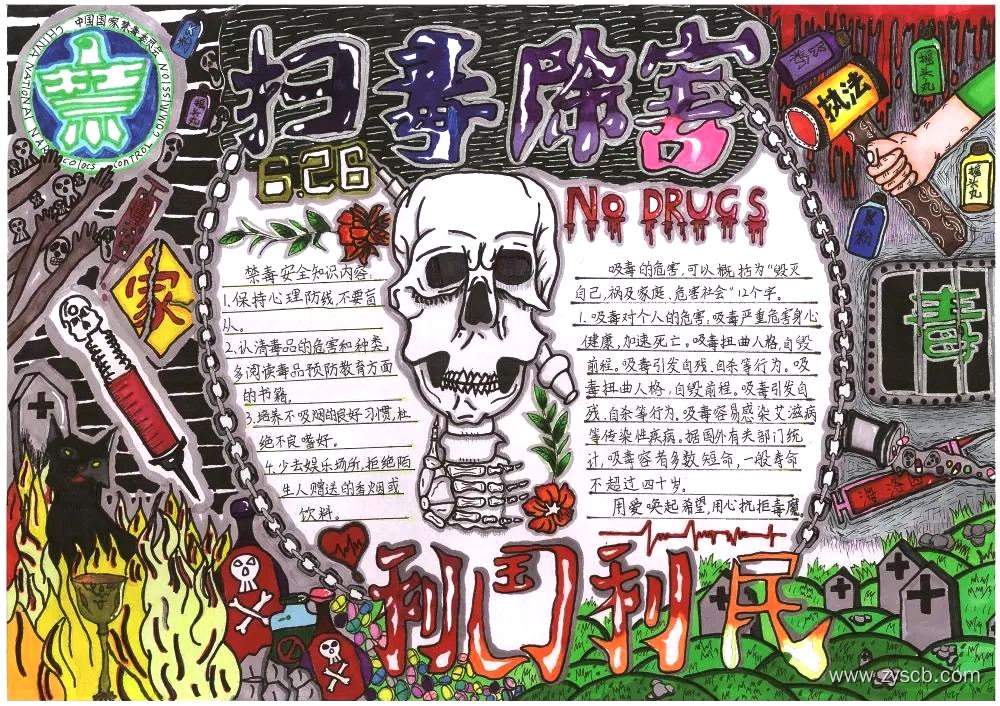 中国国家禁毒委员会
CHINA NATIONAL NARCOTICS CONTROL COMMISSION
禁
K粉
扫毒除害
摇头丸
执法
摇头丸
K粉
6.26
NO DRUGS
家
毒
禁毒安全知识内容:
1.保持心理防线,不要盲
从。
2.认清毒品的危害和种类,
多阅读毒品预防教育方面
的书籍。
3.培养不吸烟的良好习惯,杜
绝不良嗜好。
4.少去娱乐场所,拒绝陌
生人赠送的香烟或
饮料。
吸毒的危害,可以概括为“毁灭
自己,祸及家庭、危害社会”12个字。
1.吸毒对个人的危害:吸毒严重危害身心
健康,加速死亡。吸毒扭曲人格,自毁
前程。吸毒引发自残、自杀等行为。吸
毒扭曲人格,自毁前程。吸毒引发自
残、自杀等行为。吸毒容易感染艾滋病
等传染性疾病。据国外有关部门统
计,吸毒容者多数短命,一般寿命
不超过四十岁。
用爱唤起希望,用心抗拒毒魔。
利国利民
www.zyscb.com